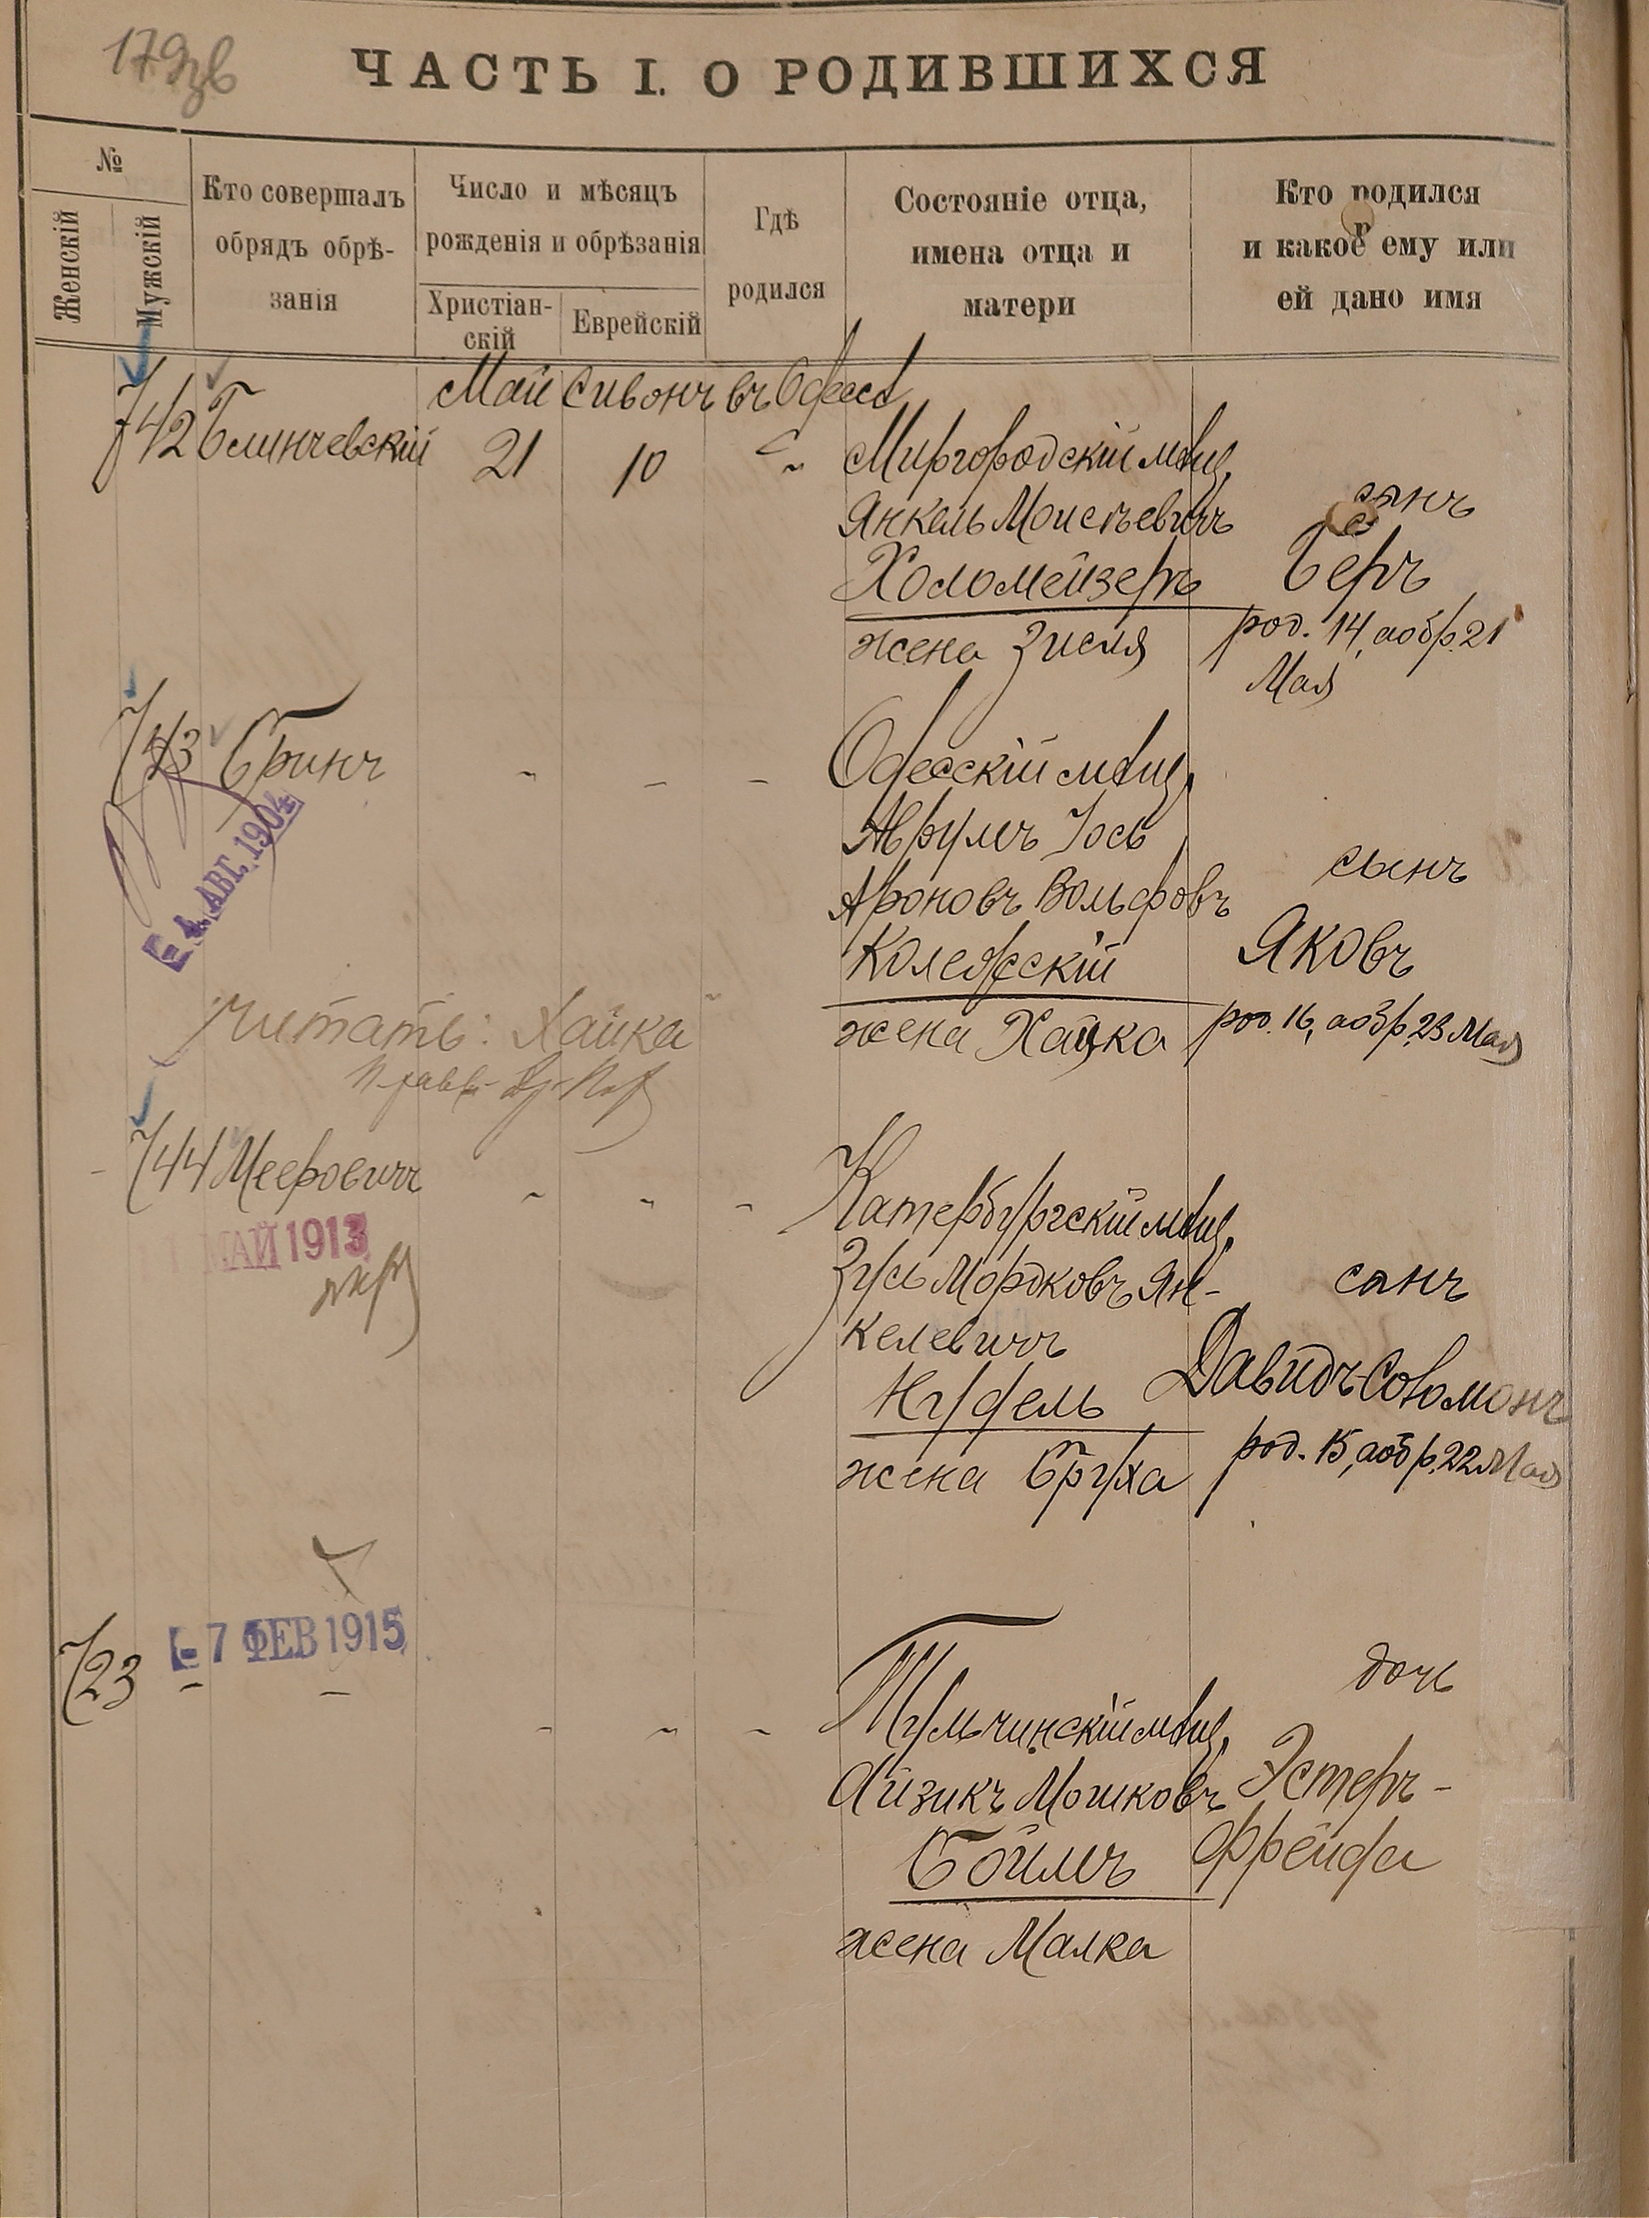 179
ЧАСТЬ I. О РОДИВШИХСЯ
№
Женскій
Мужскій
Кто совершалъ
обрядъ обрѣ-
занія
Число и мѣсяцъ
рожденія и обрѣзанія
Христіан-
скій
Еврейскій
Гдѣ
родился
Состояніе отца,
имена отца и
матери
Кто родился
и какое ему или
ей дано имя
Май Сивонъ въ Одессѣ
742 Блинчевскій 21 10 " Миргородскій мѣщ.
Янкель Моисѣевичъ
Холомейзеръ
жена Зисля
сынъ
Беръ
род. 14, а обр. 21
Мая
743 Бринъ - - - Одесскій мѣщ.
Аврумъ Іось
Ароновъ Вольфовъ
Коледеcскій
жена Хайка
сынъ
Яковъ
род. 16, а обр. 23 Мая
4 АВГ. 1904
читать: Хайка
744 Мееровичъ - - - Катербургскій мѣщ.
Зусь Мордковъ Ян-
келевичъ
Нудель
жена Бруха
сынъ
Давидъ-Соломонъ
род. 15, а обр. 22 Мая
МАЙ 1913
- 7 ФЕВ 1915
723 - - - - - Тульчинскій мѣщ.
Айзикъ Мошковъ
Боймъ
жена Малка
дочь
Эстеръ-
Фрейда